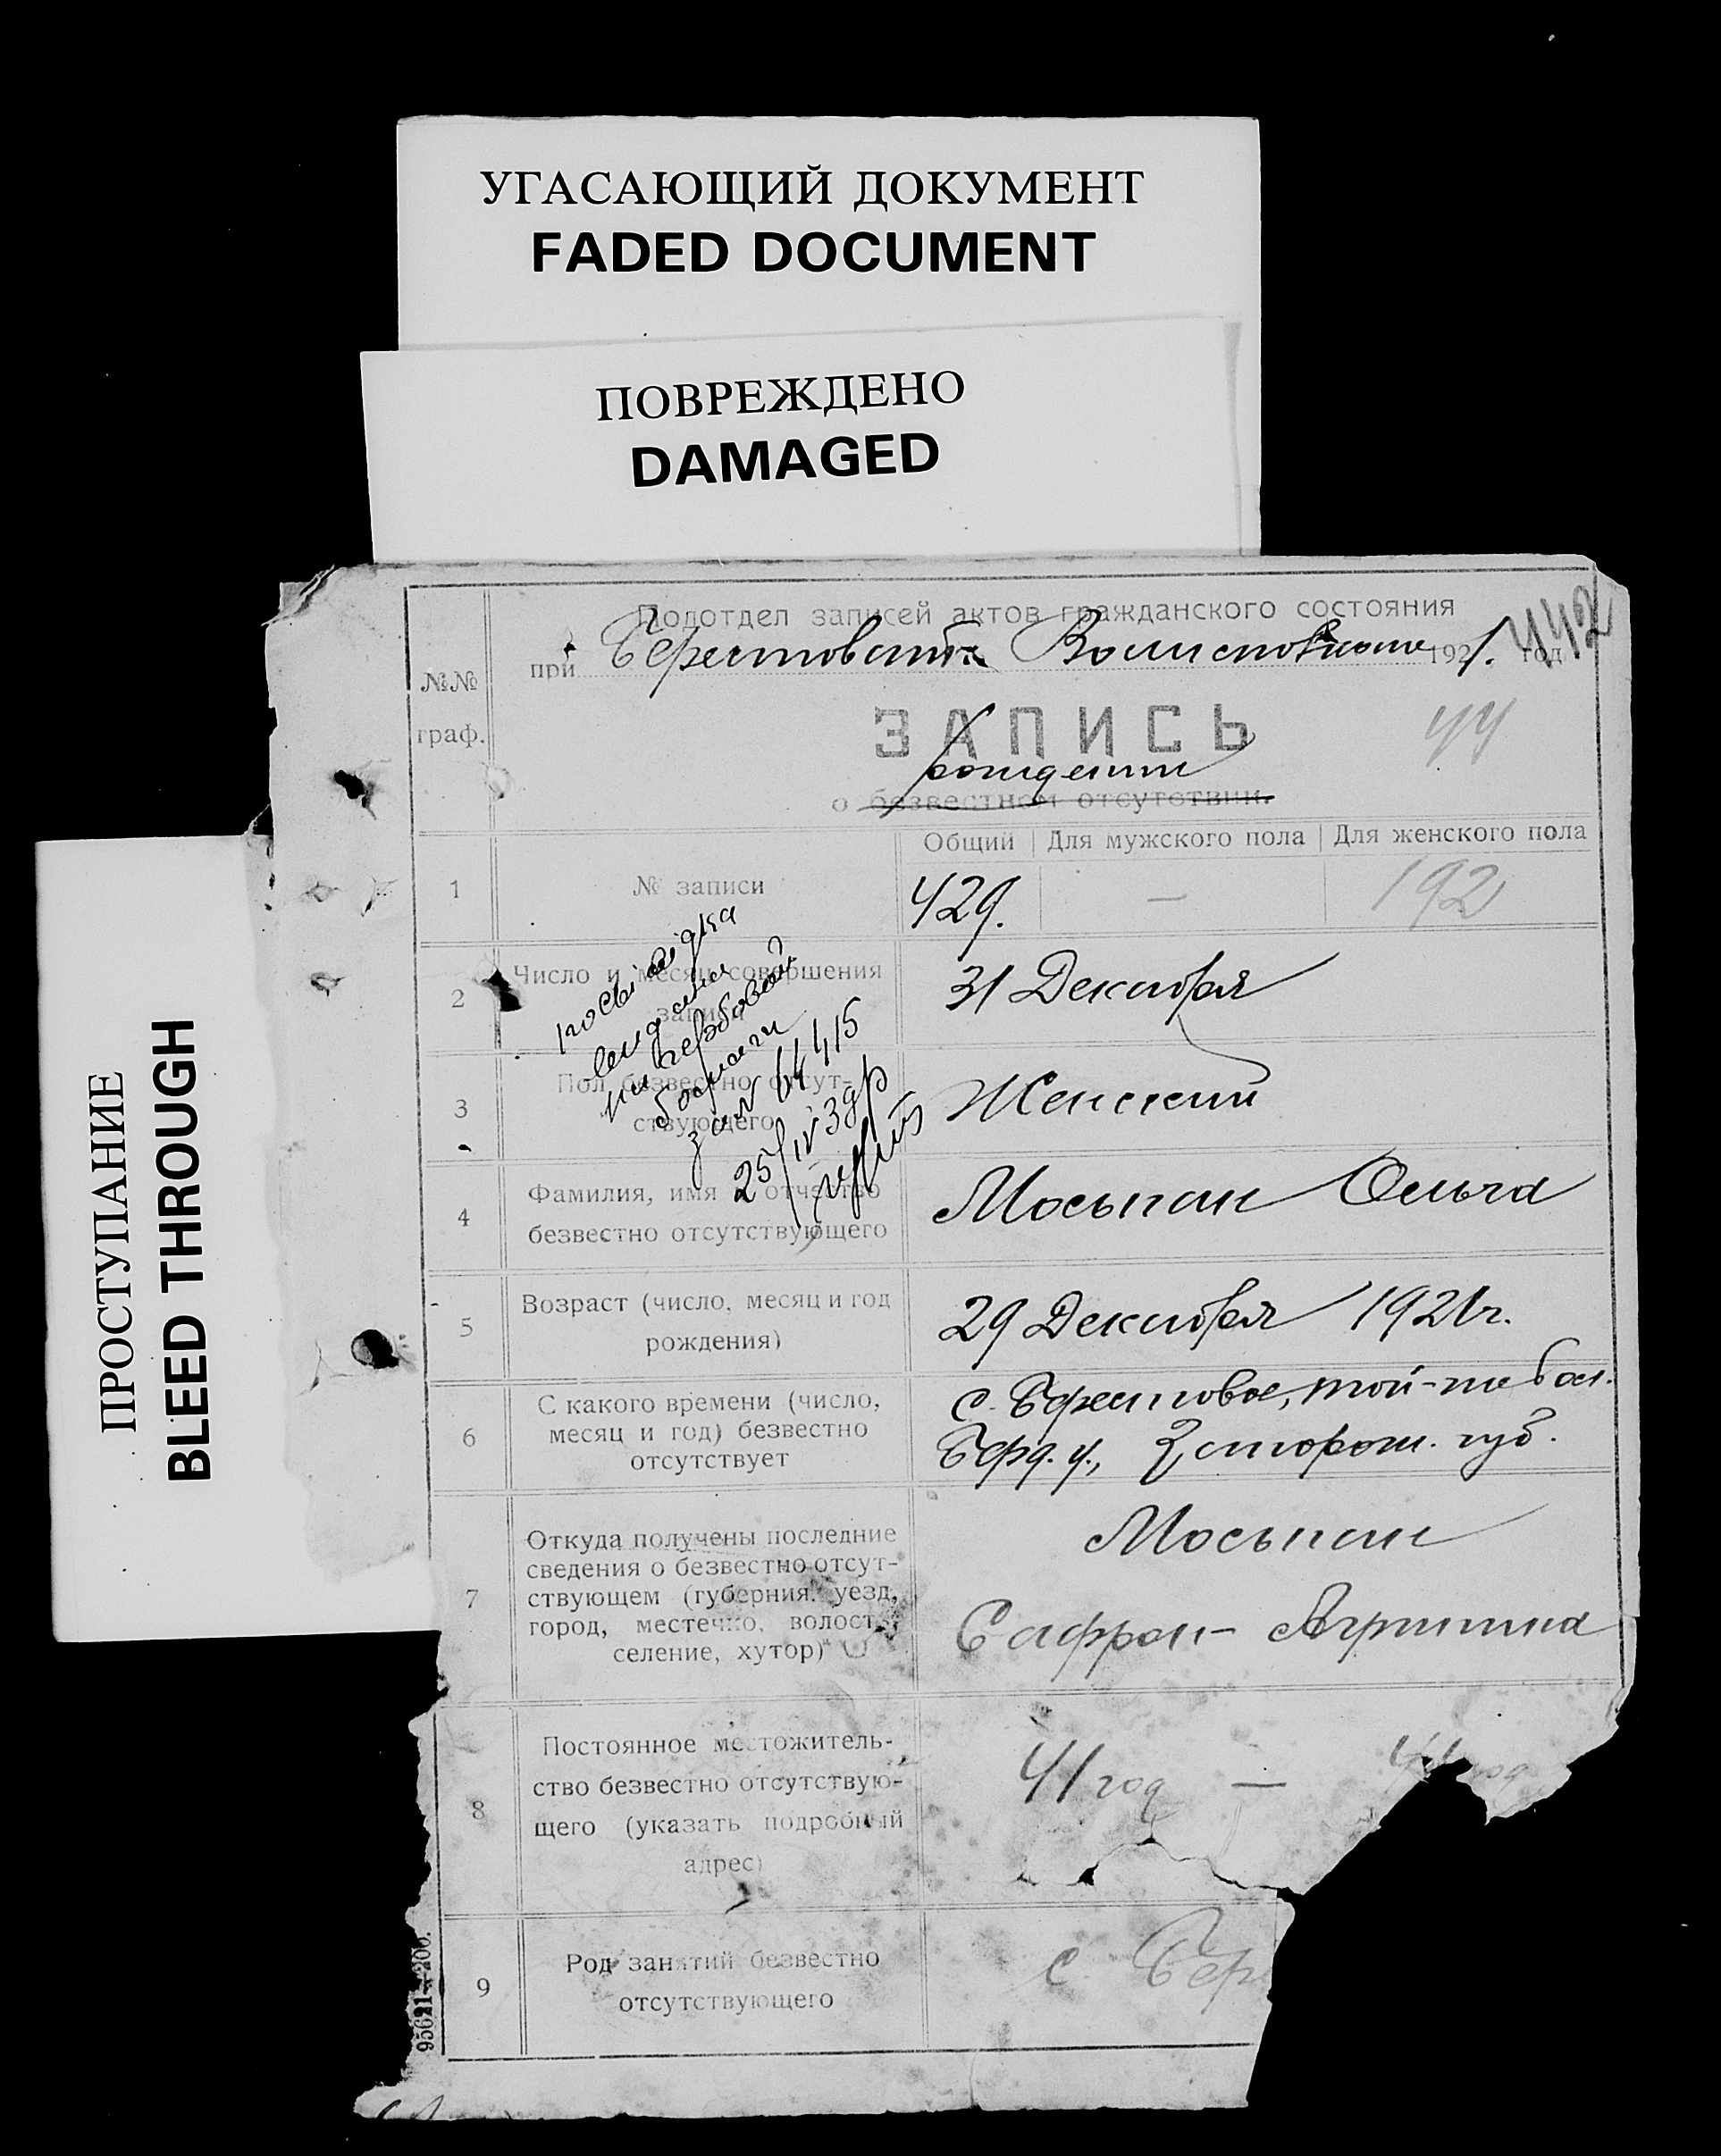 УГАСАЮЩИЙ ДОКУМЕНТ
FADED DOCUMENT
ПОВРЕЖДЕНО
DAMAGED
ПРОСТУПАНИЕ
BLEED THROUGH
442
Подотдел записей актов гражданского состояния
при 1921. год
44
№№
граф.
ЗАПИСЬ
рождении
о безвестном отсутствии.
Общий Для мужского пола Для женского пола
1 № записи 429. — 192
2 Число и месяц совершения
записи
31 Декабря
3 Пол безвестно отсут-
ствующего
Женский
на гербовой
за № 64415
25/IV 3 др
4 Фамилия, имя и отчество
безвестно отсутствующего
Мосьпан Ольга
5 Возраст (число, месяц и год
рождения)
29 Декабря 1921 г.
6 С какого времени (число,
месяц и год) безвестно
отсутствует
с. Берестовое, той-же вол.
Берд. у., Запорож. губ.
7 Откуда получены последние
сведения о безвестно отсут-
ствующем (губерния, уезд,
город, местечко, волость,
селение, хутор)
Мосьпан
Сафрон - Агрипина
8 Постоянное местожитель-
ство безвестно отсутствую-
щего (указать подробный
адрес)
41 год — год
9 Род занятий безвестно
отсутствующего
с Бер
95621-20б.